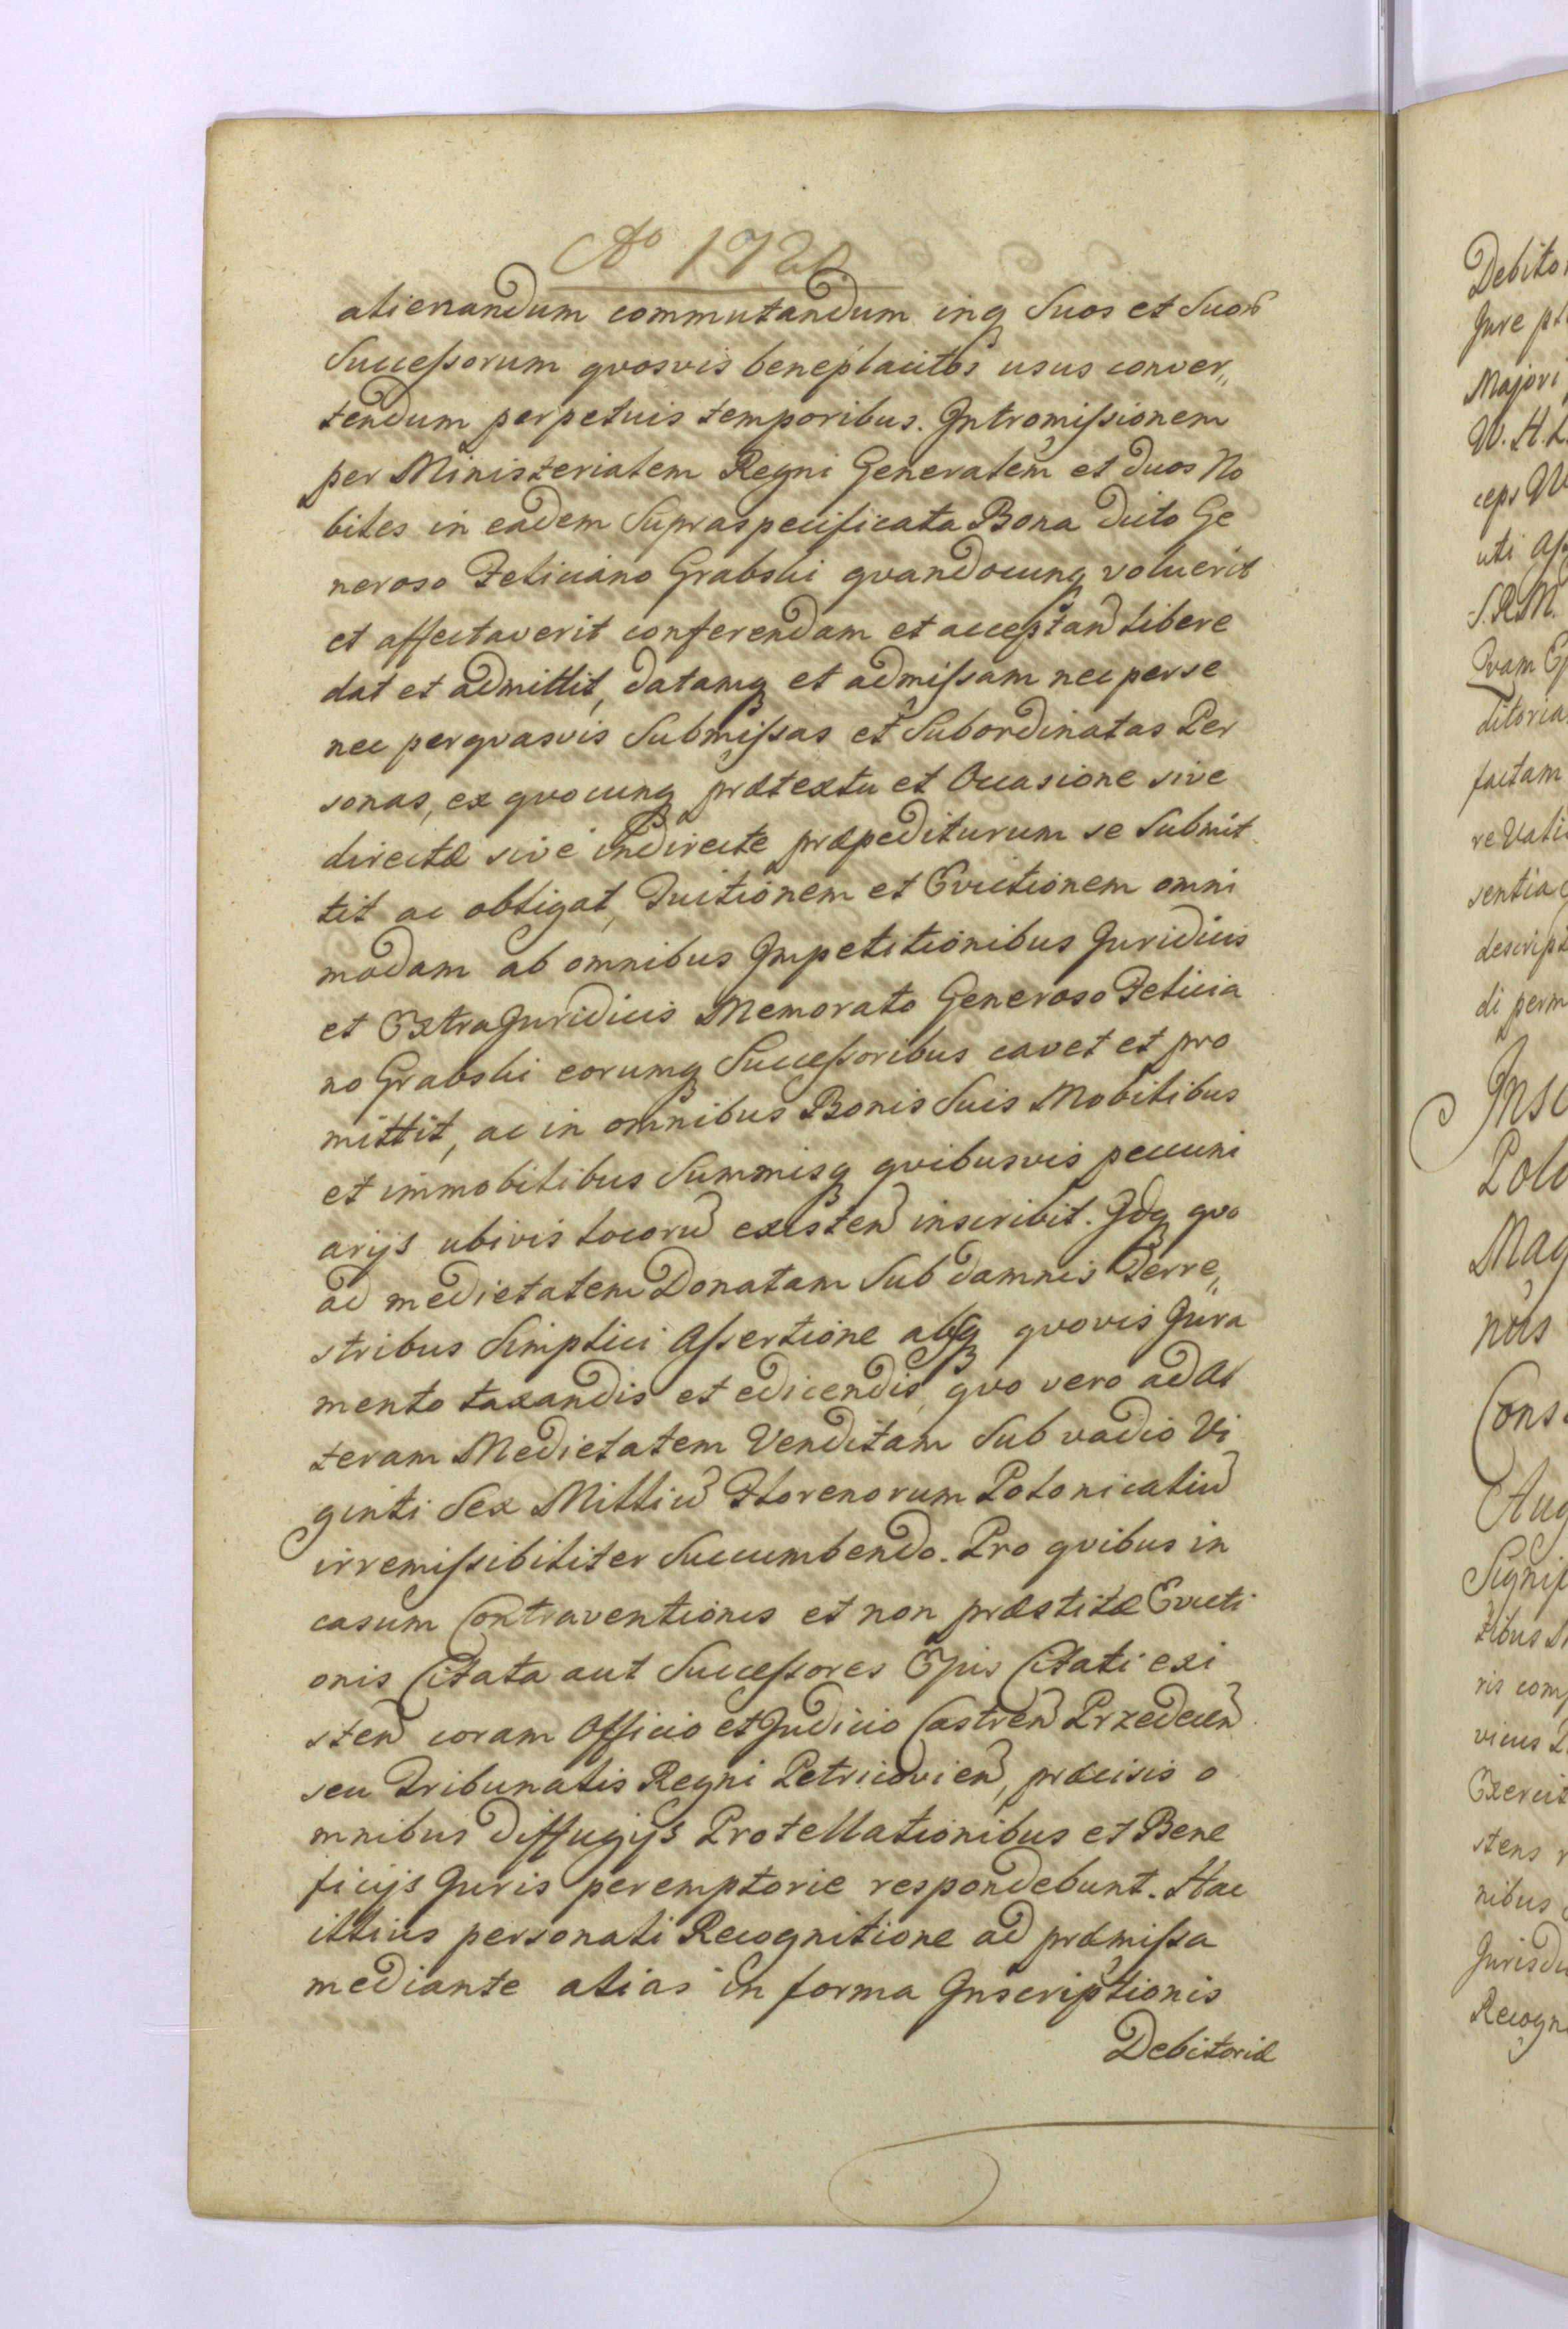 Ao 172
alienandum commutandum inq Suos et Suor
Successorum qvosvis beneplacitos usus conver„
tendum perpetuis temporibus. Intromissionem
per Ministerialem Regni Generalem et duos No
biles in eadem Supraspecificata Bona dicto Ge
neroso Feliciano Grabski qvandocunq voluerit
et affectaverit conferendam et acceptan libere
dat et admittit, datamq et admissam nec per se
nec per qvasvis Submissas et Subordinatas Per
sonas, ex qvocunq prætextu et Occasione sive
directæ sive indirecte præpediturum se Submit
tit ac obligat, Tuitionem et Evictionem omni
modam ab omnibus Impetitionibus Juridicis
et ExtraJuridicis Memorato Generoso Felicia
no Grabski eorumq Successoribus cavet et pro
mittit, ac in omnibus Bonis Suis Mobilibus
et immobilibus Summisq qvibusvis pecuni
arijs ubivis locoru existen inscribit. Idq qvo
ad medietatem Donatam Sub damnis Terre„
stribus Simplici Assertione absq qvovis Jura
mento taxandis et edicendis, qvo vero ad Al
teram Medietatem Venditam Sub vadio Vi
ginti Sex Milliu Florenorum Polonicaliu
irremissibiliter Succumbendo. Pro qvibus in
casum Contraventionis et non præstitæ Evicti
onis Citata aut Successores Ejus Citati exi
sten coram Officio et Judicio Castren Przedecen
seu Tribunalis Regni Petricovien, præcisis o
mnibus diffugijs Protellationibus et Bene
ficijs Juris peremptorie respondebunt. Hac
illius personali Recognitione ad præmissa
mediante alias in forma Inscriptionis
Debitoriæ